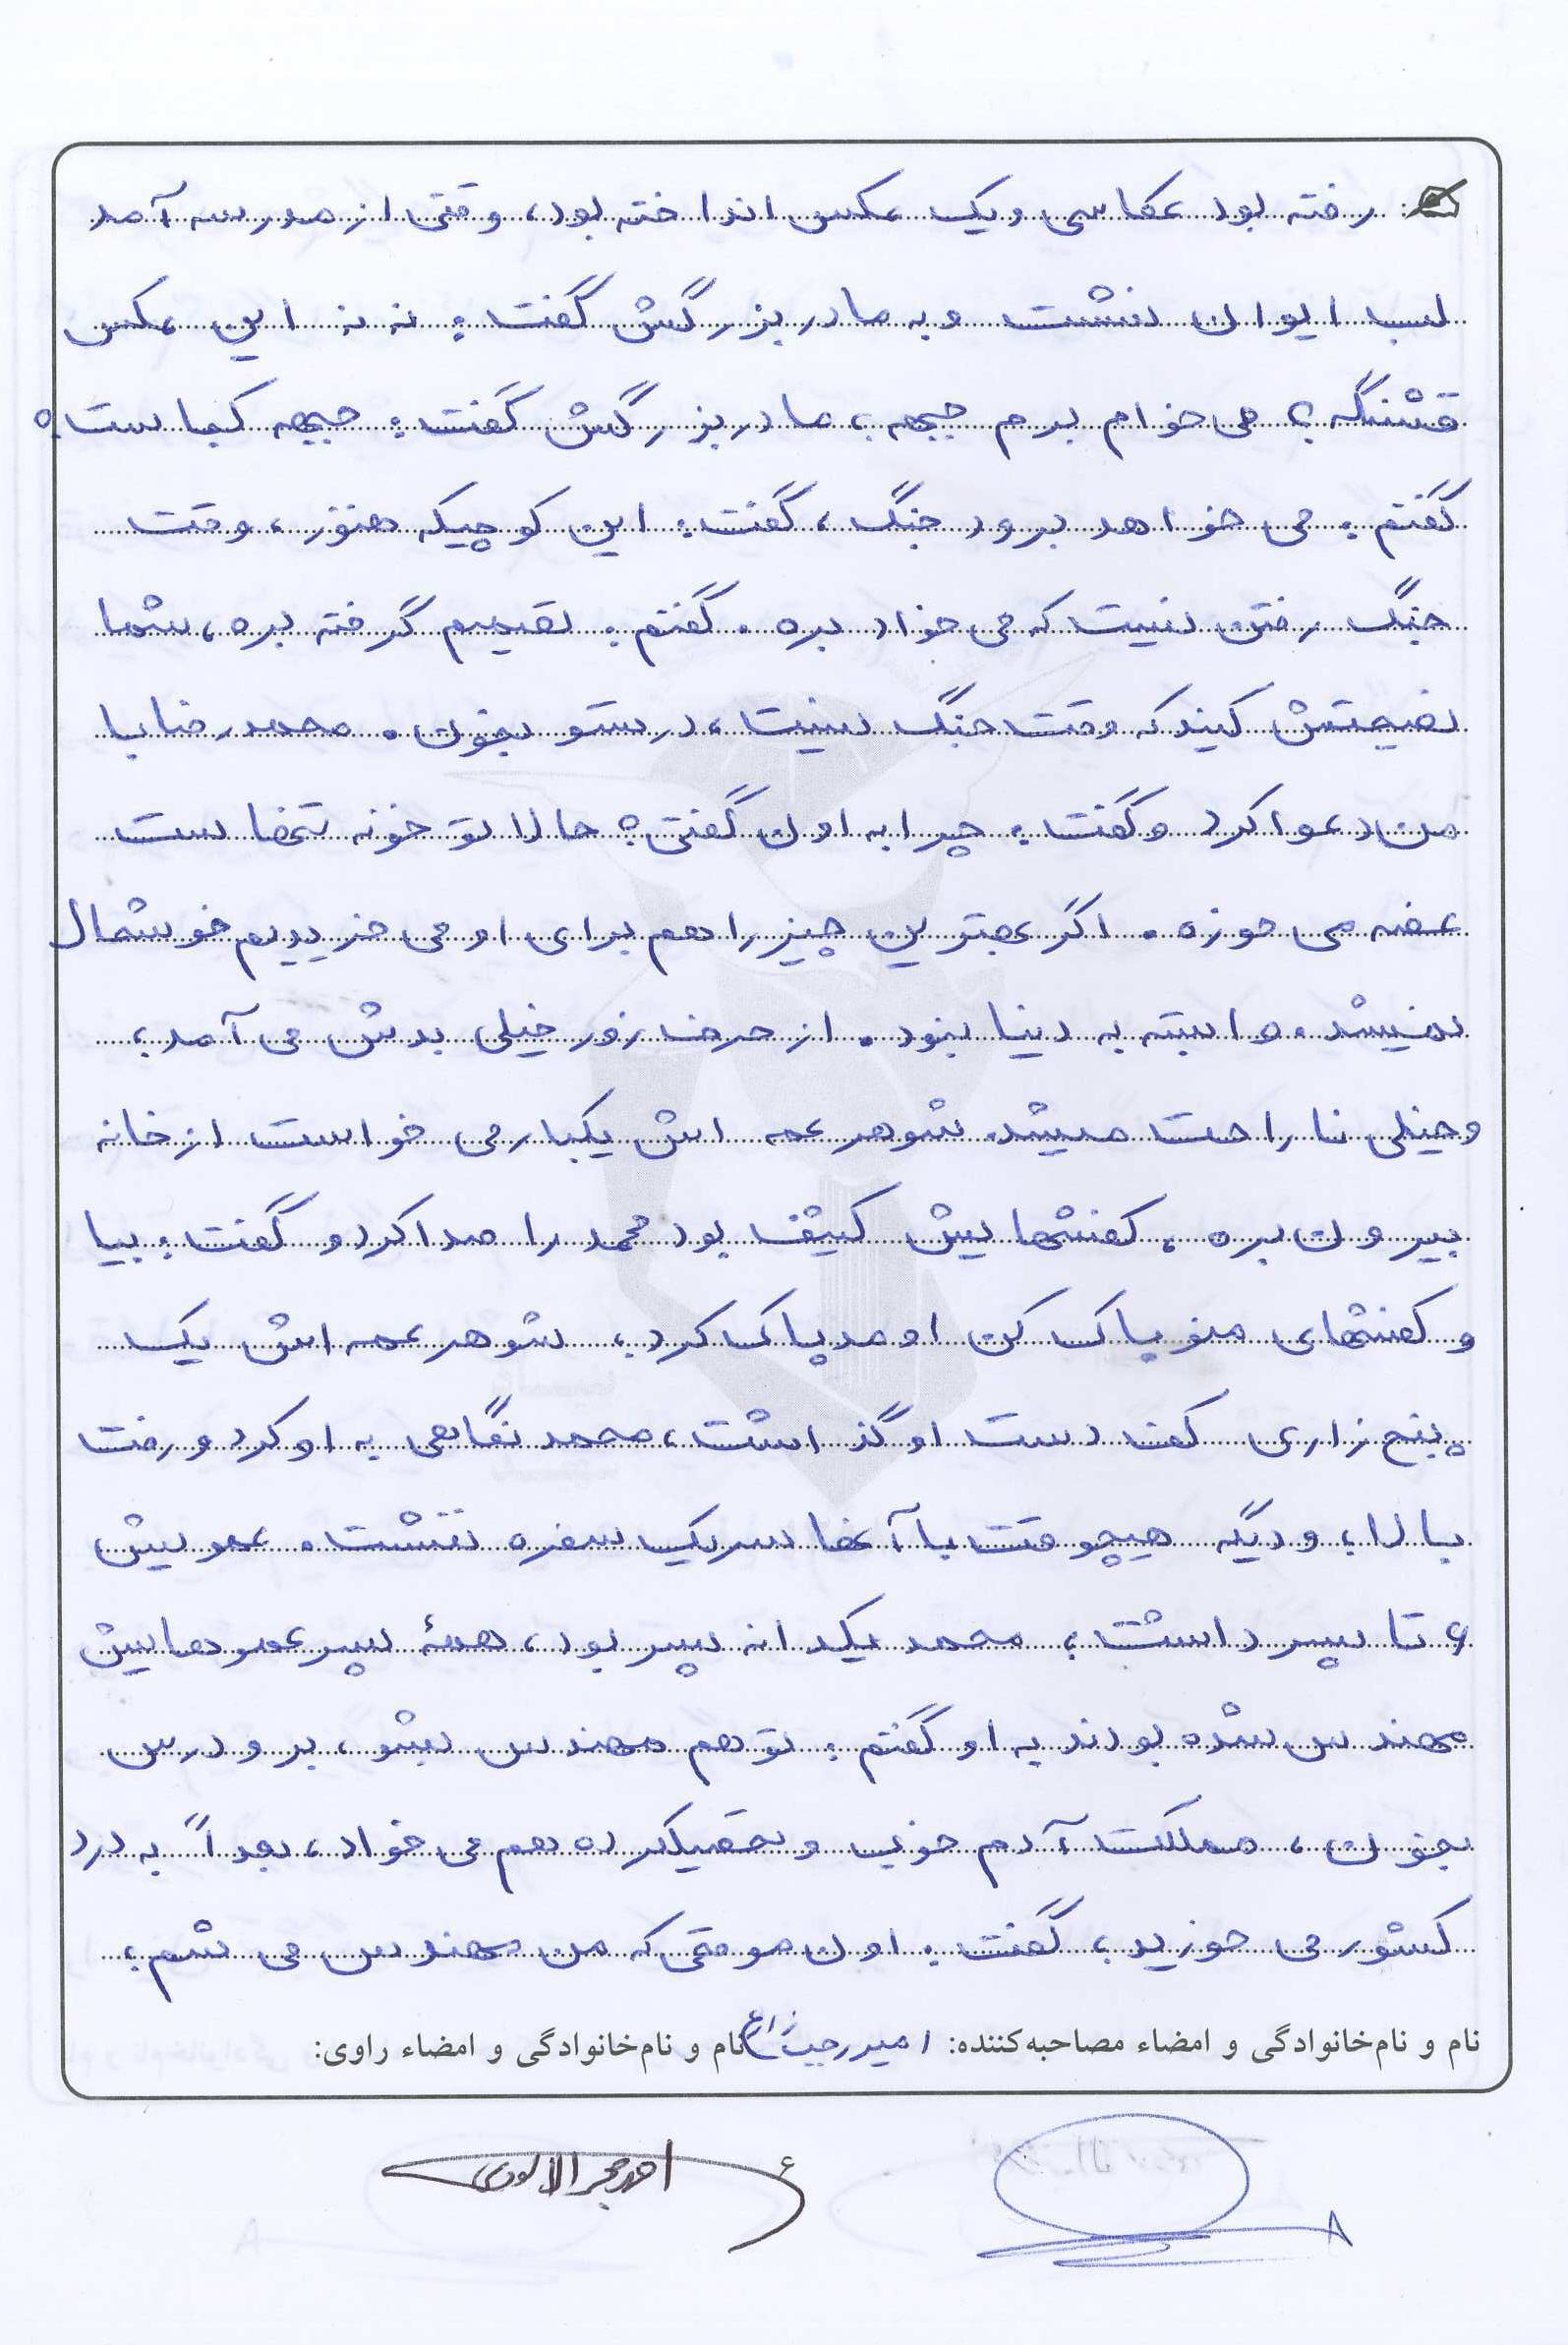 رفته بود عکاسی و یک عکس انداخته بود، وقتی از مدرسه آمد
لب ایوان نشست و به مادر بزرگش گفت: ننه این عکس
قشنگه؟ می خوام برم جبهه، مادر بزرگش گفت: جبهه کجاست؟
گفتم: می خواهد برود جنگ، گفت: این کوچیکه هنوز، وقت
جنگ رفتن نیست که می خواد بره. گفتم: تصمیم گرفته بره، شما
نصیحتش کنید که وقت جنگ نیست، درستو بخون. محمدرضا با
من دعوا کرد و گفت: چرا به اون گفتی؟ حالا تو خونه تنهاست
غصه می خوره. اگر بهترین چیز را هم برای او می خریدیم خوشحال
نمیشد. وابسته به دنیا نبود. از حرف زور خیلی بدش می آمد،
و خیلی ناراحت میشد. شوهر عمه اش یکبار می خواست از خانه
بیرون بره، کفشهایش کثیف بود محمد را صدا کرد و گفت: بیا
و کفشهای منو پاک کن او مد پاک کرد، شوهر عمه اش یک
پنج زاری کف دست او گذاشت، محمد نگاهی به او کرد و رفت
بالا، و دیگه هیچوقت با آنها سر یک سفره ننشت. عمویش
۶ تا پسر داشت، محمد یکدانه پسر بود، همهٔ پسر عموهایش
مهندس شده بودند به او گفتم: تو هم مهندس بشو، برو درس
بخون، مملکت آدم خوب و تحصیلکرده هم می خواد، بعداً به درد
کشور می خورید، گفت: اون موقعی که من مهندس می شم،
نام و نام‌خانوادگی و امضاء مصاحبه‌کننده: امیر رجب زارع نام و نام‌خانوادگی و امضاء راوی: